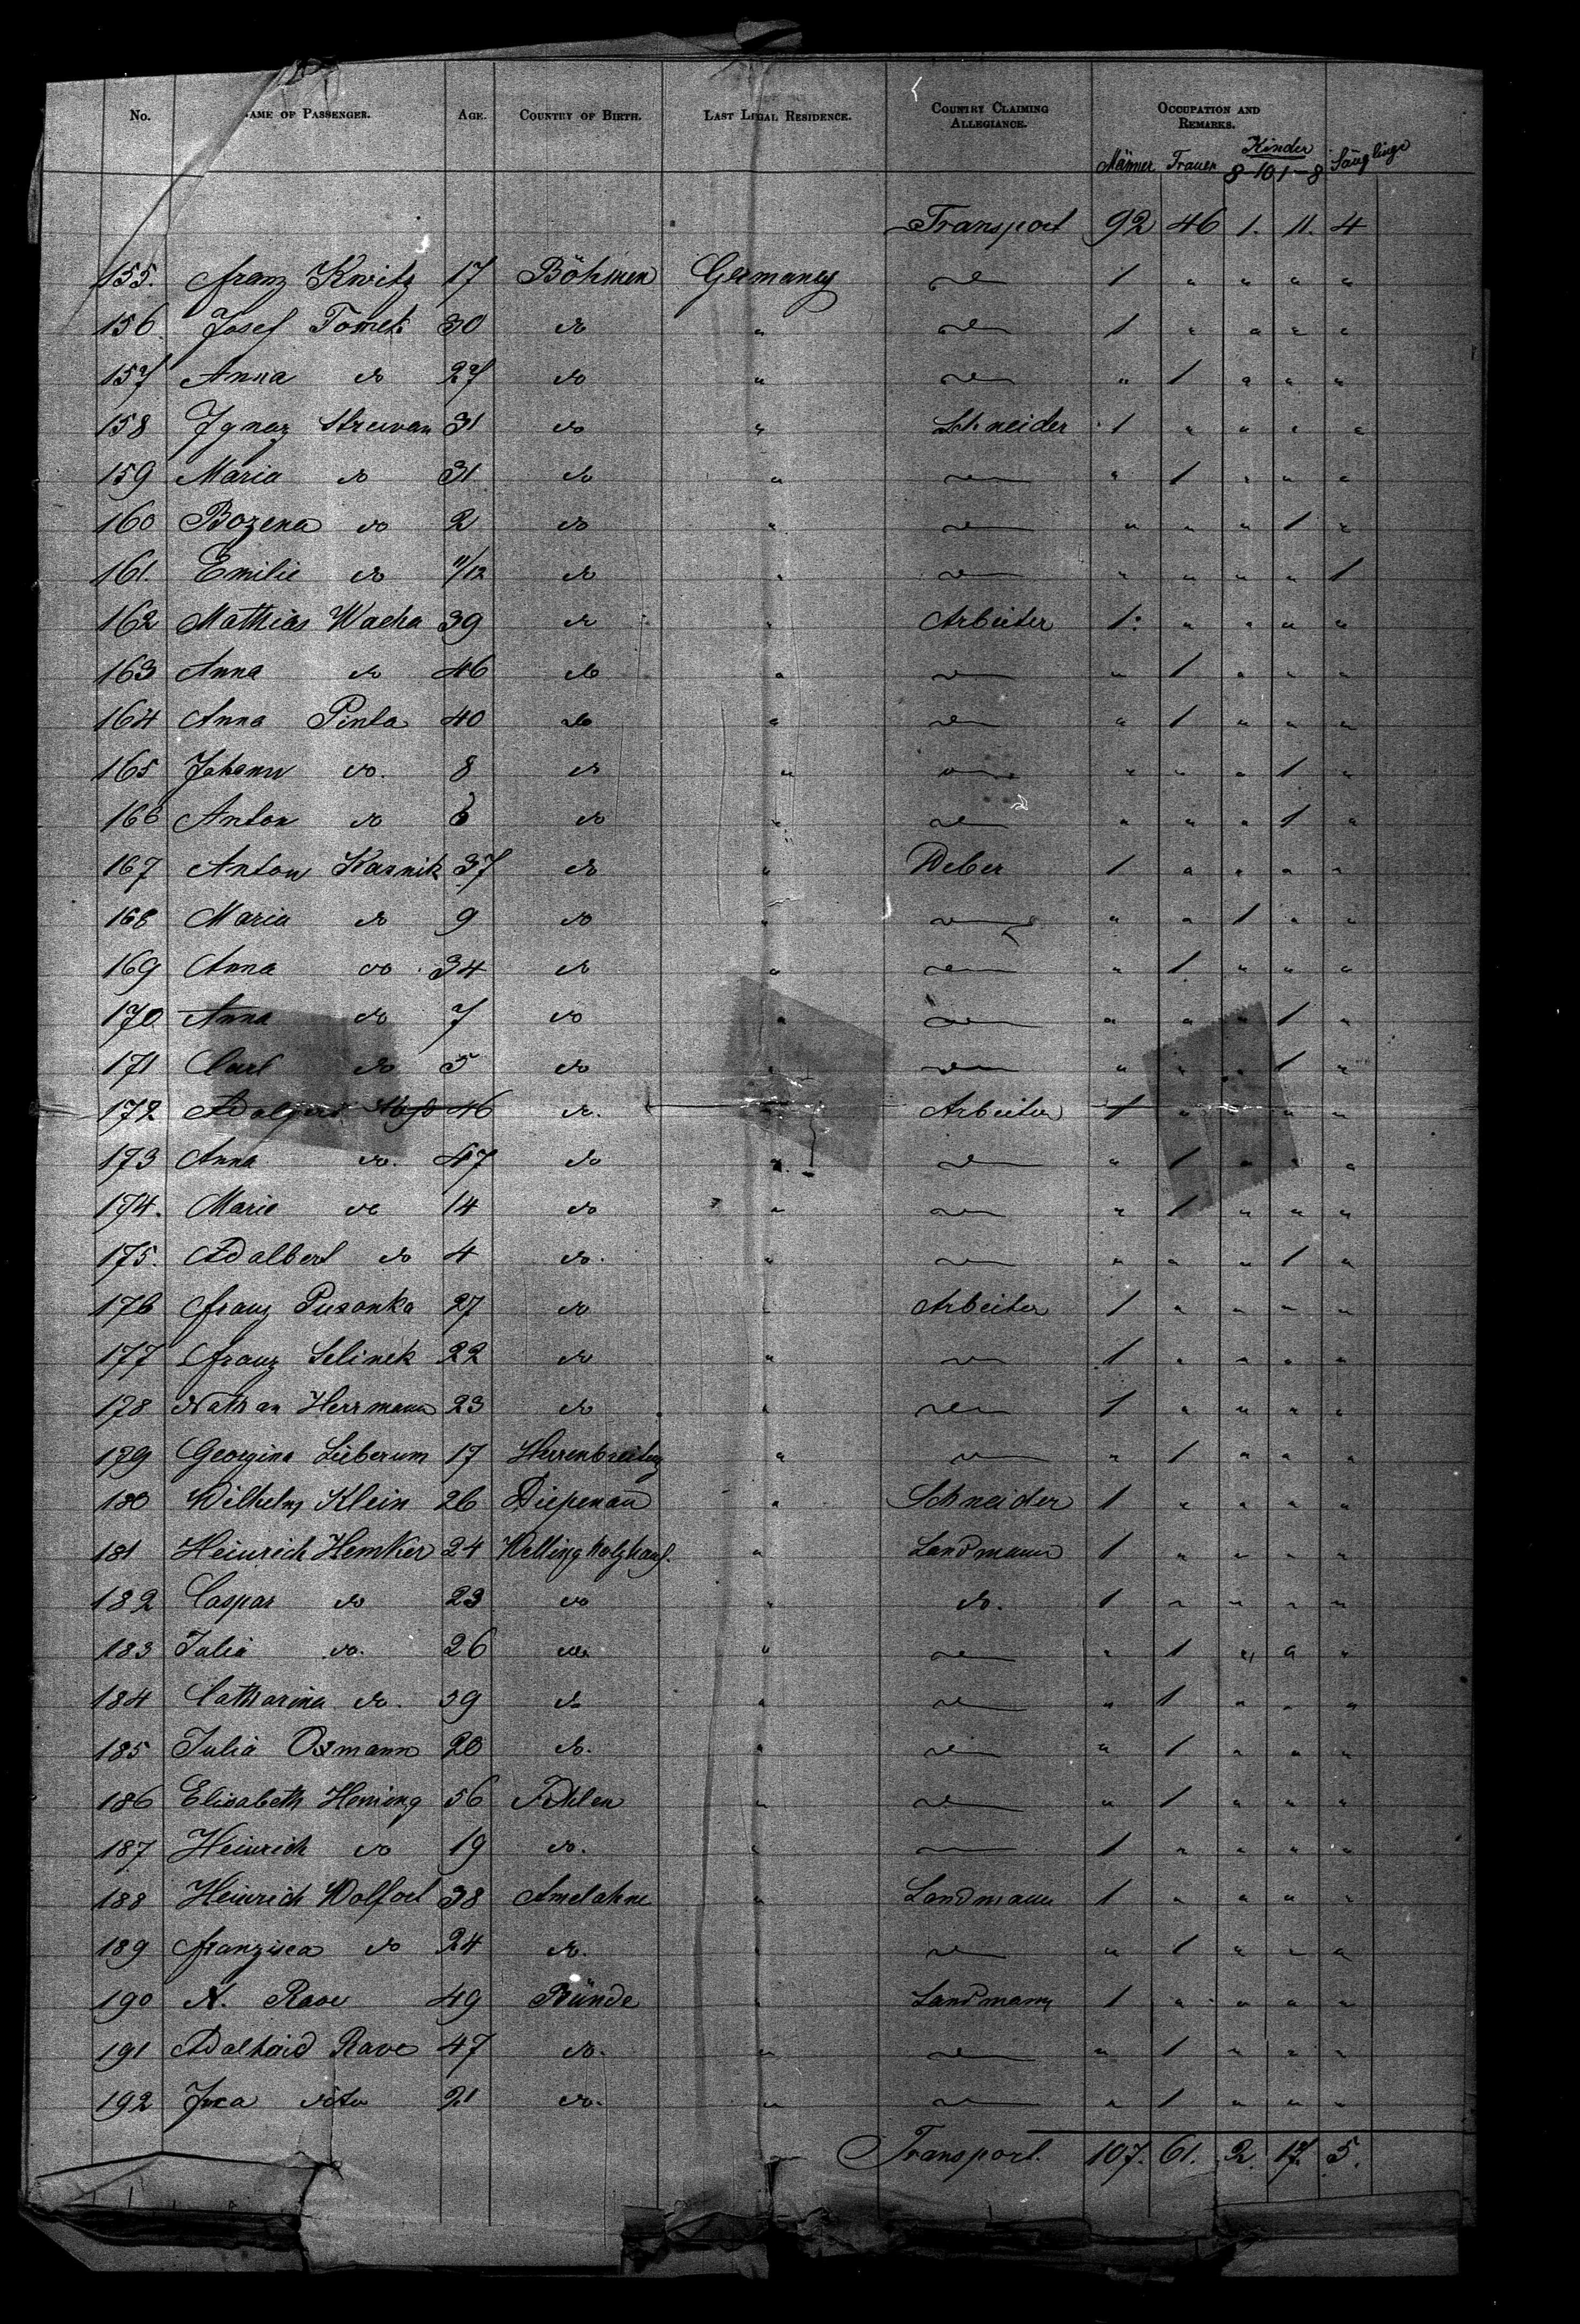 No. NAME OF PASSENGER. AGE. COUNTRY OF BIRTH. LAST LEGAL RESIDENCE. COUNTRY CLAIMING ALLEGIANCE. OCCUPATION AND REMARKS.
Männer Frauen Kinder 8-10 1-8 Säuglinge
Transport 92 46 1. 11. 4
155. Franz Kwitz 17 Böhmen Germany — 1 " " " "
156. Josef Tomek 30 do " — 1 " " " "
157 Anna do 27 do " — " 1 " " "
158 Ignaz 31 do " Schneider 1 " " " "
159 Maria do 31 do " — " 1 " " "
160 Bozena do 2 do " — " " " 1 "
161. Emilie do 11/12 do " — " " " " 1
162 Mathias Wacha 39 do " Arbeiter 1 " " " "
163 Anna do 46 do " — " 1 " " "
164 Anna Pinta 40 do " — " 1 " " "
165 Johann do. 8 do " — " " " 1 "
166 Anton do 6 do " — " " " 1 "
167 Anton Kasnik 37 do " Weber 1 " " " "
168 Maria do 9 do " — " " 1 " "
169 Anna do 34 do " — " 1 " " "
170 Anna do 7 do " — " " " 1 "
171 Carl do 5 do " — " " " 1 "
172 46 do. Arbeiter 1 " " "
173 Anna do. 47 do " — " 1 " "
174. Marie do 14 do " — " 1 " " "
175. Adalbert do 4 do. " — " " " 1 "
176 Franz Pusanka 27 do " Arbeiter 1 " " " "
177 Franz Selinek 22 do " — 1 " " " "
178 Nathan Herrmann 23 do " — 1 " " " "
179 Georgina Lieberum 17 Herrenbreitung " — " 1 " " "
180 Wilhelm Klein 26 Diepenau " Schneider 1 " " " "
181 Heinrich Hemker 24 Wellingholzhaus. " Landmann 1 " " " "
182 Caspar do 23 do " do. 1 " " " "
183 Julia do. 26 do " — " 1 " " "
184 Catharina do. 59 do " — " 1 " " "
185 Julia Osmann 20 do. " — " 1 " " "
186 Elisabeth Hening 56 " — " 1 " " "
187 Heinrich do 19 do. " — 1 " " " "
188 Heinrich Wolfert 38 " Landmann 1 " " " "
189 Franzisca do 24 do. " — " 1 " " "
190 H. Rave 49 Bünde " Landmann 1 " " " "
191 Adalhaid Rave 47 do. " — " 1 " " "
192 dito 21 do. " — " 1 " " "
Transport. 107. 61. 2. 17. 5.